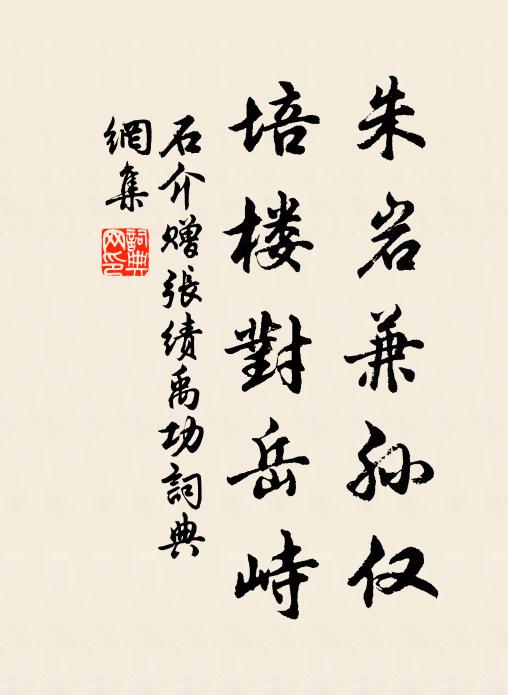 朱岩兼孙仅
培楼對岳峙
石介赠張績禹功詞典
網集
詞典網印